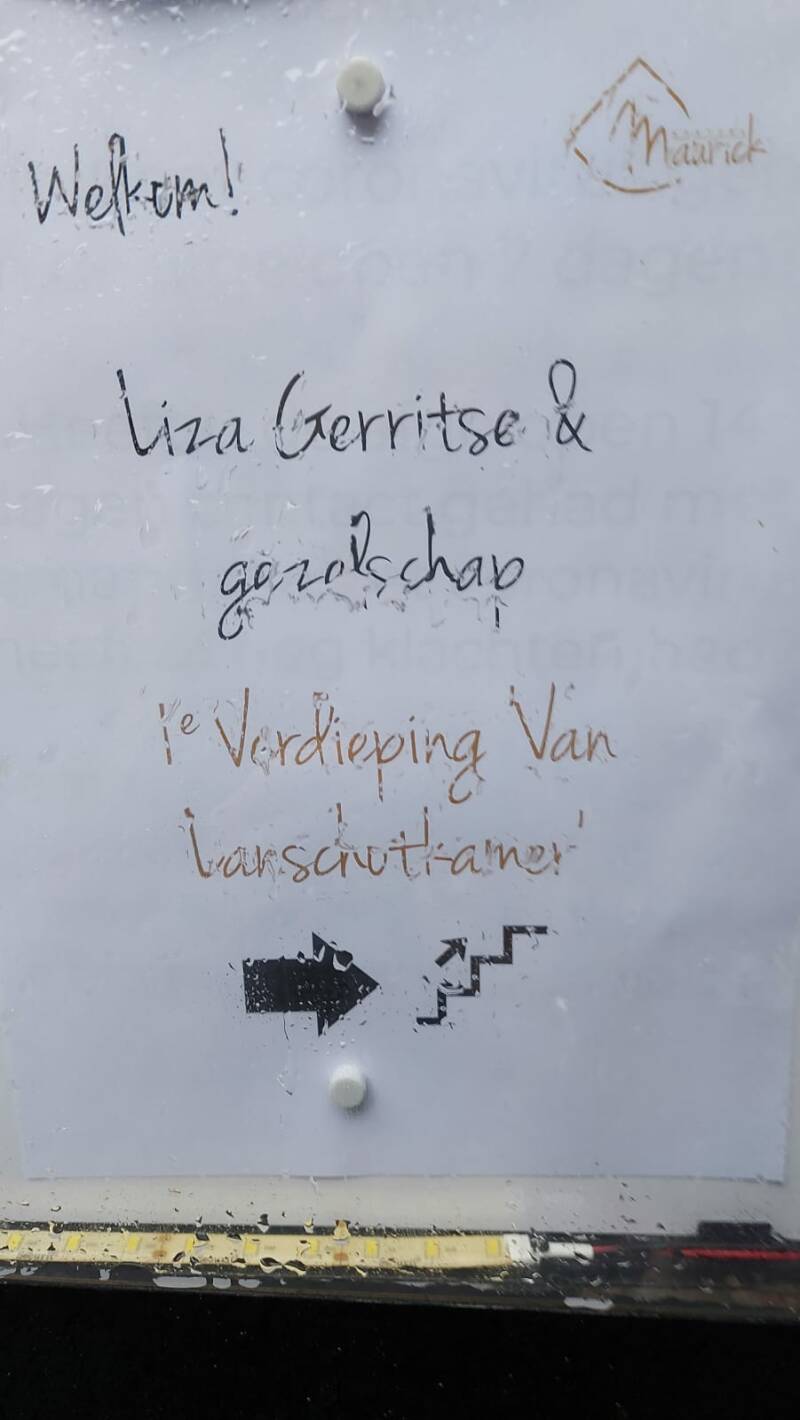 Welkom!
Maurick
Liza Gerritse &
gezelschap
1e Verdieping Van
Lanschotkamer